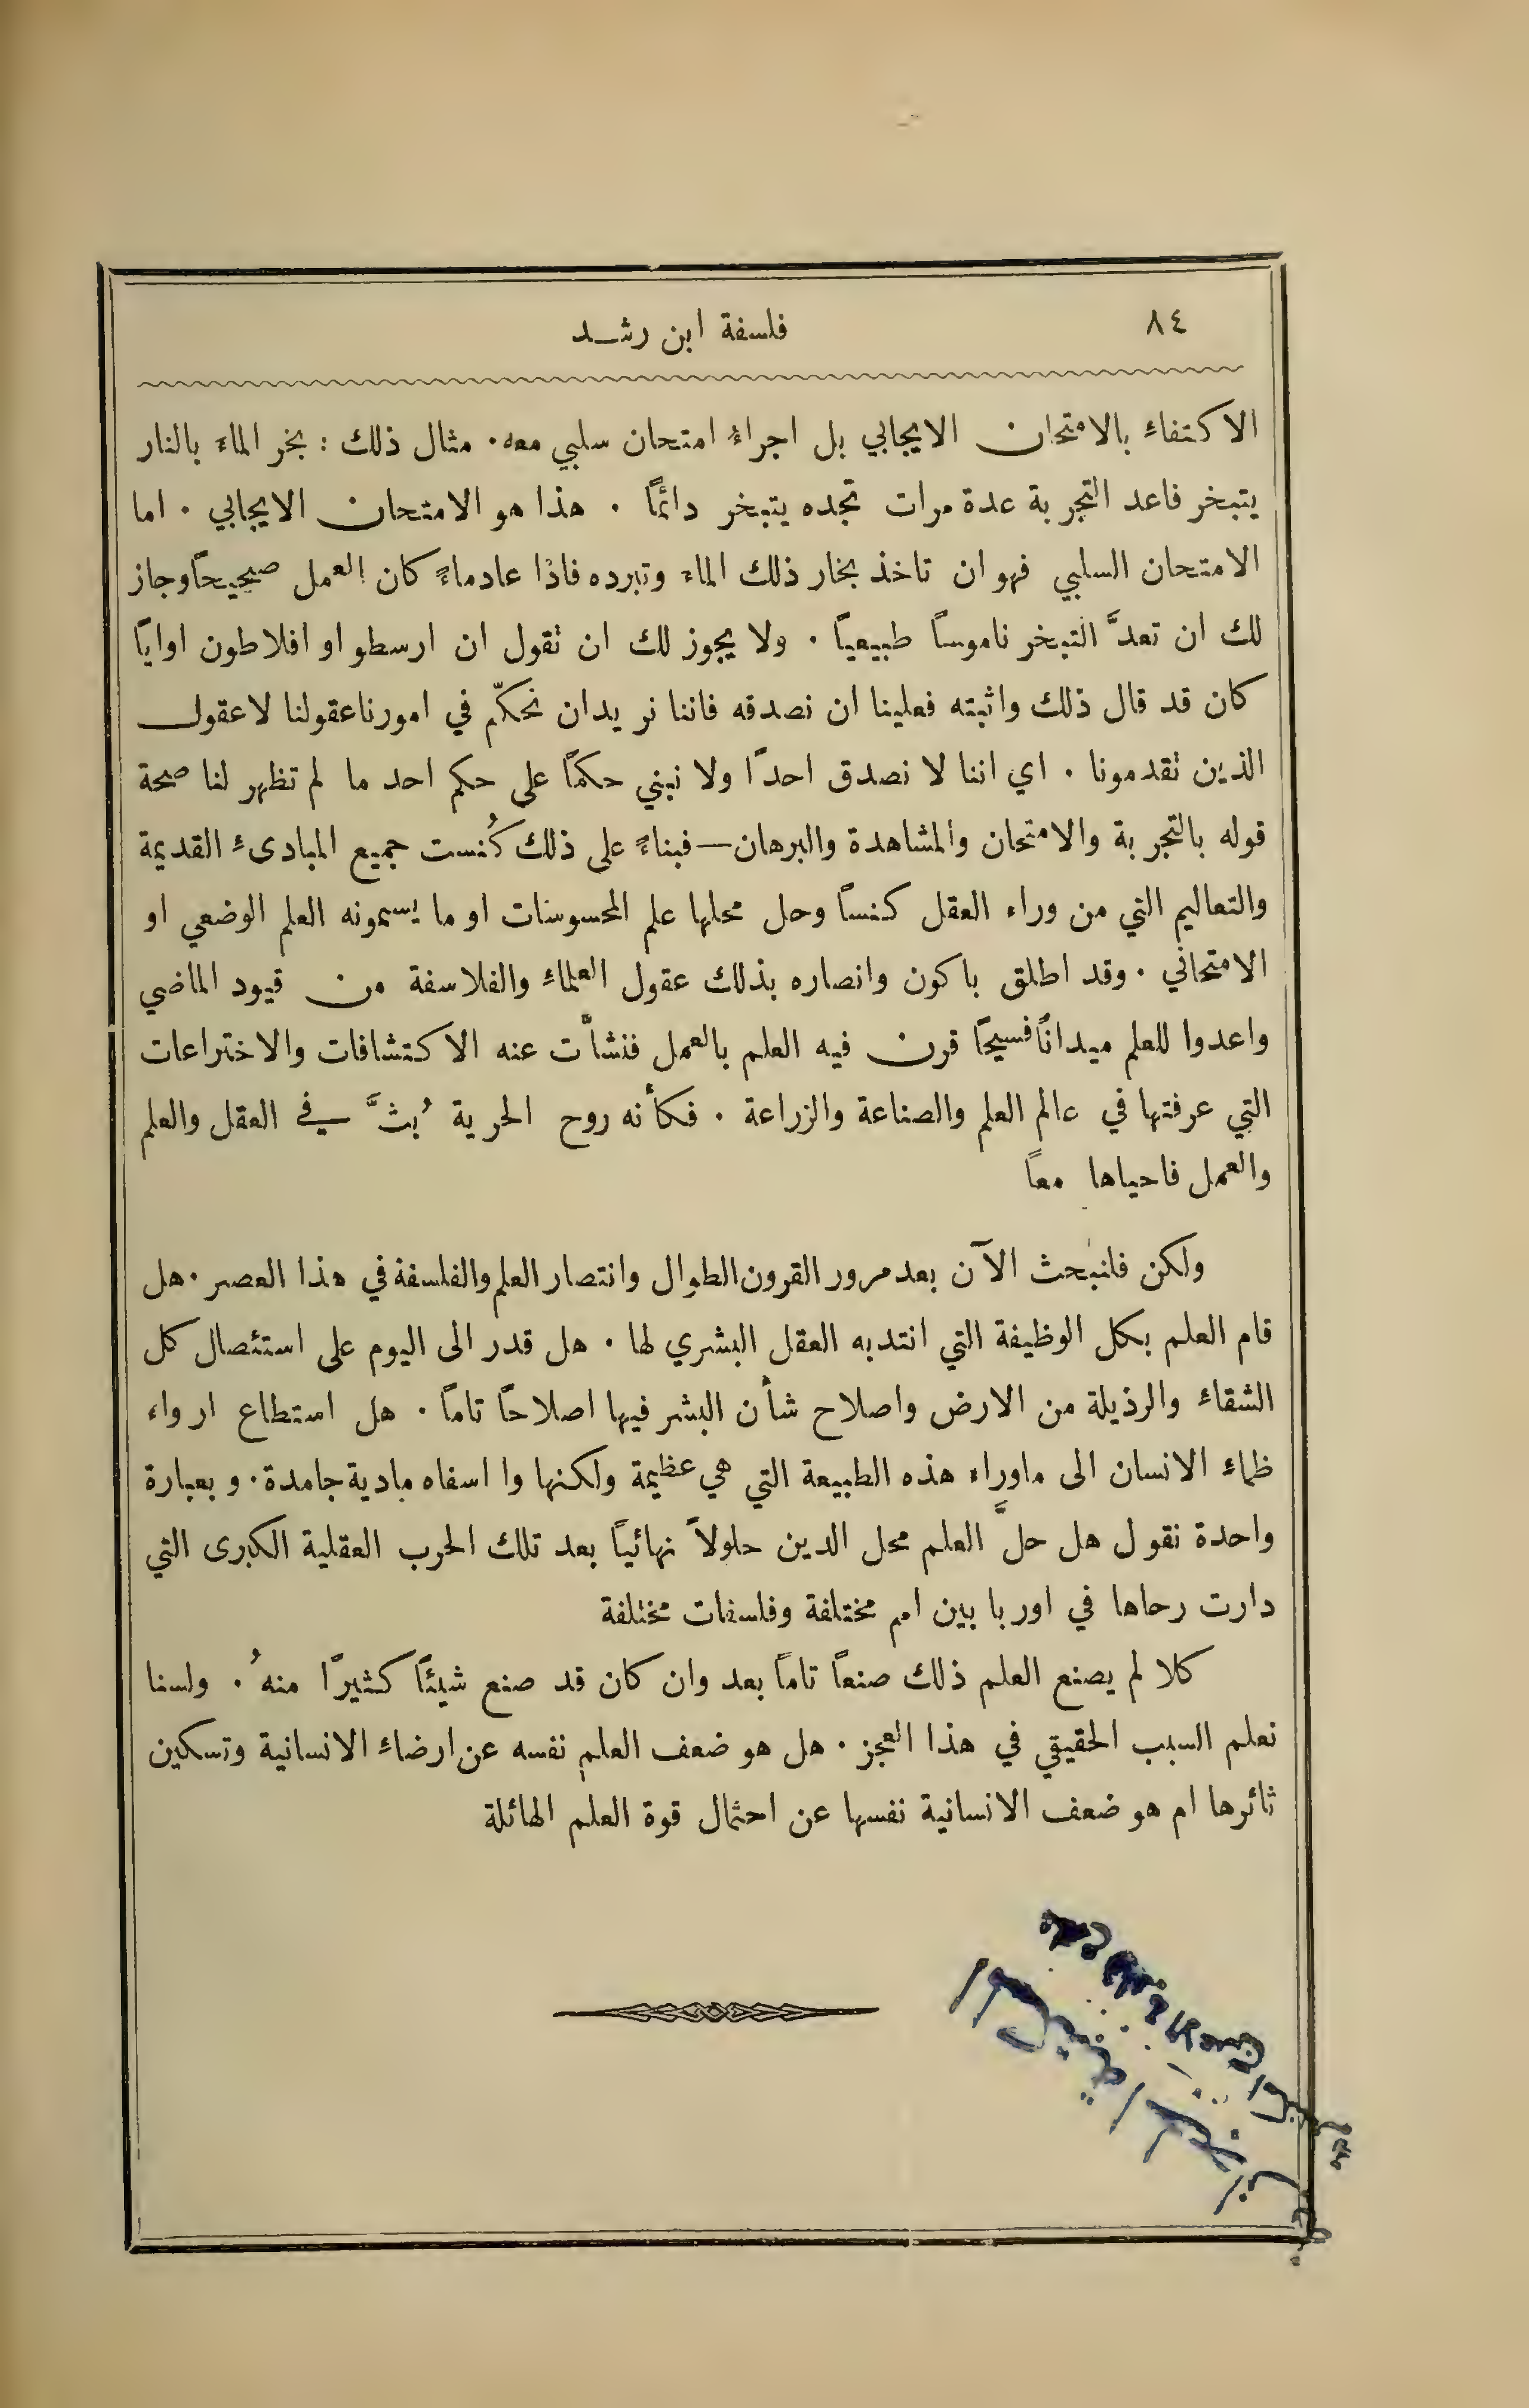 ٨٤
فلسفة ابن رشد
الاكتفاءُ بالامتحان الايجابي بل اجراءُ امتحان سلبي معه. مثال ذلك : بخر الماء بالنار
يتبخر فاعد التجربة عدة مرات تجده يتبخر دائمًا . هذا هو الامتحان الايجابي . اما
الامتحان السلبي فهو ان تاخذ بخار ذلك الماء وتبرده فاذا عادماءً كان العمل صحيحًا وجاز
لك ان تعدَّ التبخر ناموسًا طبيعيًا . ولا يجوز لك ان تقول ان ارسطو او افلاطون اوايًا
كان قد قال ذلك واثبته فعلينا ان نصدقه فاننا نريدان نحكّم في امورنا عقولنا لاعقول
الذين تقدمونا . اي اننا لا نصدق احدًا ولا نبني حكمًا على حكم احد ما لم تظهر لنا صحة
قوله بالتجربة والامتحان والمشاهدة والبرهان — فبناءً على ذلك كُنست جميع المبادىء القديمة
والتعاليم التي من وراء العقل كنسًا وحل محلها علم المحسوسات او ما يسمونه العلم الوضعي او
الامتحاني . وقد اطلق باكون وانصاره بذلك عقول العلماءُ والفلاسفة من قيود الماضي
واعدوا للعلم ميدانًا فسيحًا قرن فيه العلم بالعمل فنشأت عنه الاكتشافات والاختراعات
التي عرفتها في عالم العلم والصناعة والزراعة . فكأنه روح الحرية بُثَّ في العقل والعلم
والعمل فاحياها معًا
ولكن فلنبحث الآن بعد مرور القرون الطوال وانتصار العلم والفلسفة في هذا العصر . هل
قام العلم بكل الوظيفة التي انتدبه العقل البشري لها . هل قدر الى اليوم على استئصال كل
الشقاءُ والرذيلة من الارض واصلاح شأن البشر فيها اصلاحًا تامًا . هل استطاع ارواء
ظماء الانسان الى ماوراء هذه الطبيعة التي هي عظيمة ولكنها وا اسفاه مادية جامدة . و بعبارة
واحدة نقول هل حلَّ العلم محل الدين حلولاً نهائيًا بعد تلك الحرب العقلية الكبرى التي
دارت رحاها في اوربا بين امم مختلفة وفلسفات مختلفة
كلا لم يصنع العلم ذلك صنعًا تامًا بعد وان كان قد صنع شيئًا كثيرًا منهُ . ولسنا
نعلم السبب الحقيقي في هذا العجز . هل هو ضعف العلم نفسه عن ارضاءُ الانسانية وتسكين
ثائرها ام هو ضعف الانسانية نفسها عن احتمال قوة العلم الهائلة